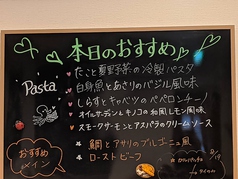 本日のおすすめ
Pasta
たこと夏野菜の冷製パスタ
白身魚とあさりのバジル風味
しらすとキャベツのペペロンチーノ
オイルサーデンとキノコの和風レモン風味
スモークサーモンとアスパラのクリームソース
おすすめ
メイン
鯛とアサリのブルゴーニュ風
ローストビーフ